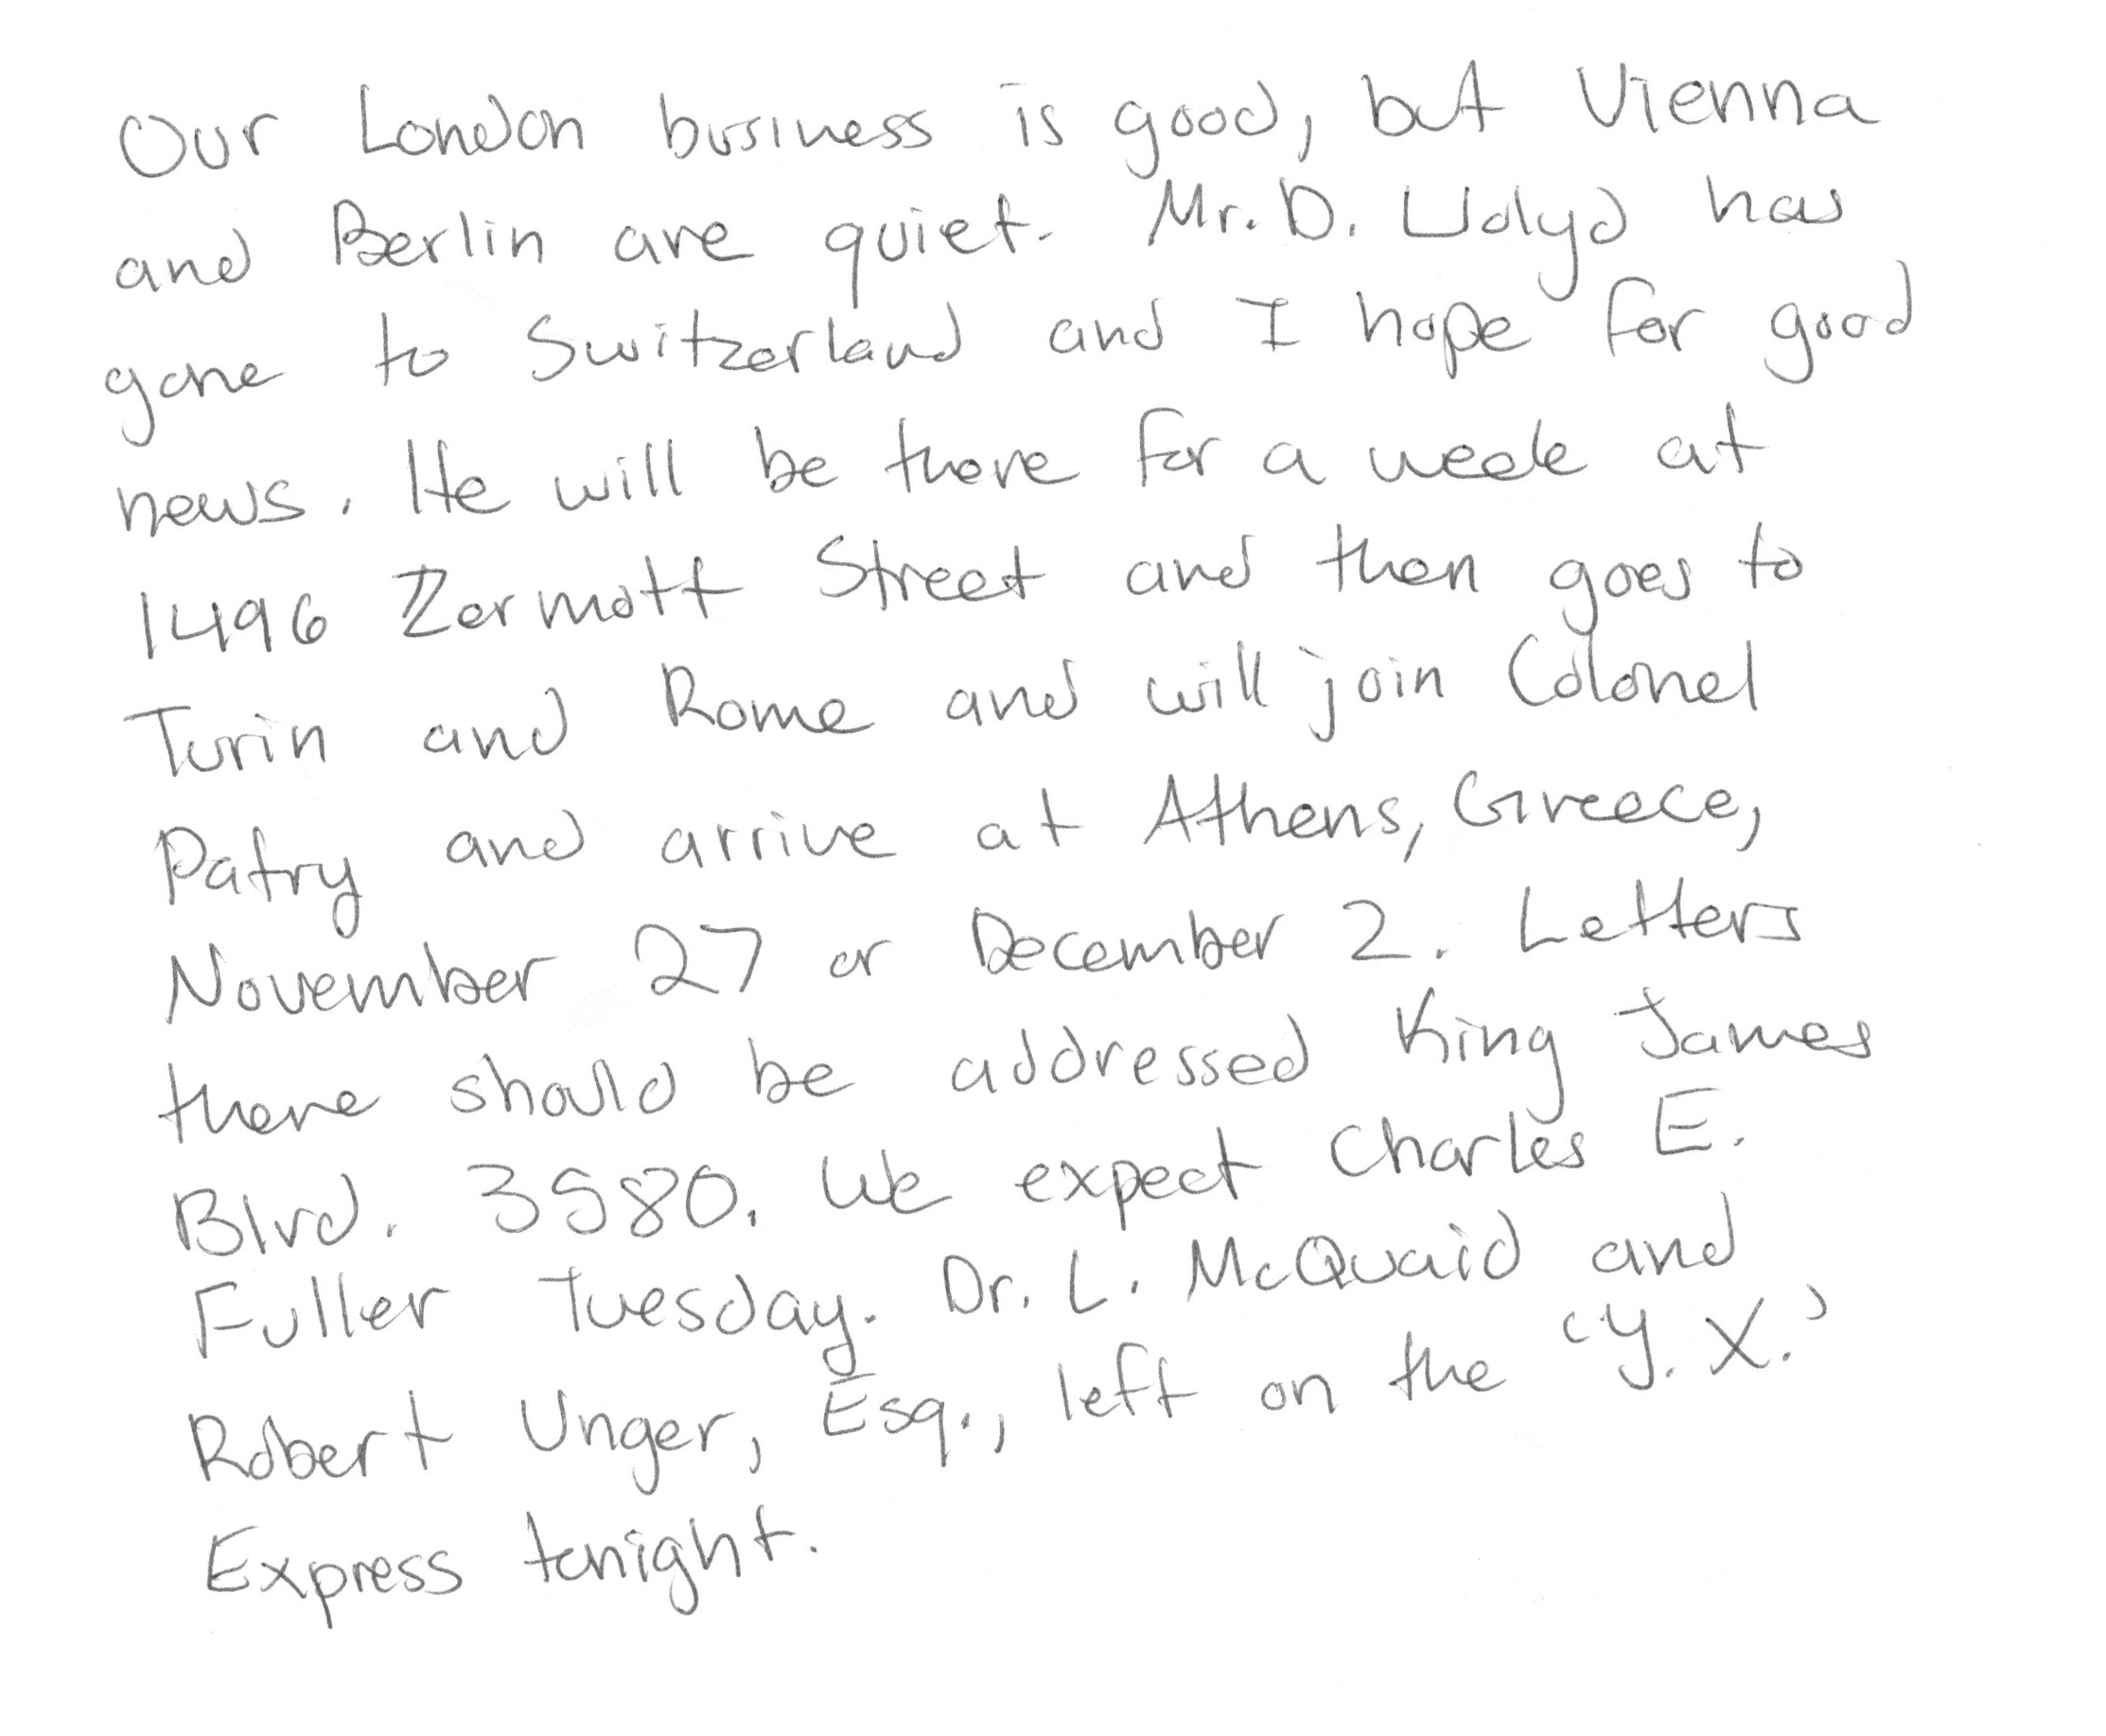 Our London business is good, but Vienna
and Berlin are quiet. Mr. D. Lloyd has
gone to Switzerland and I hope for good
news. He will be there for a week at
1496 Zermott Street and then goes to
Turin and Rome and will join Colonel
Patry and arrive at Athens, Greece,
November 27 or December 2. Letters
there should be addressed King James
Blvd. 3580. We expect Charles E.
Fuller Tuesday. Dr. L. McQuaid and
Robert Unger, Esq., left on the 'Y. X.'
Express tonight.